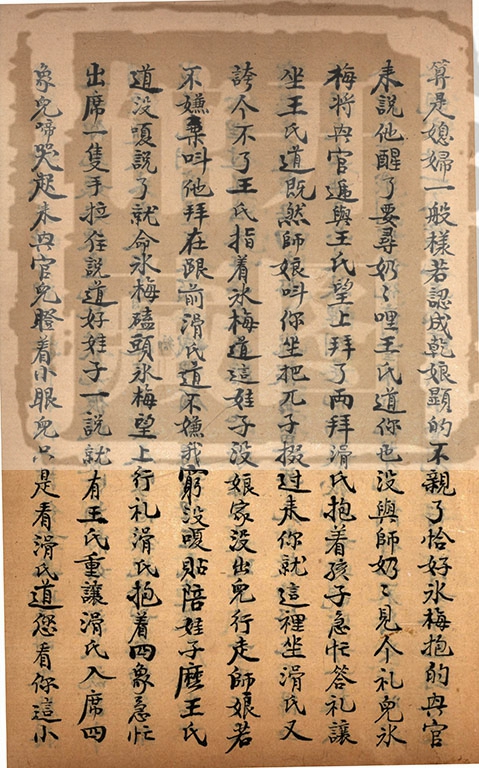 算是媳婦一般樣若認成乾娘顯的不親了恰好氷梅抱的興官
来說他醒了要尋奶〻哩王氏道你也没與師奶〻見个礼兒氷
梅將興官遞與王氏望上拜了兩拜滑氏抱着孩子急忙答礼讓
坐王氏道既然師娘叫你坐把兀子掇过来你就這裡坐滑氏又
誇个不了王氏指着氷梅道這娃子没娘家没出兒行走師娘若
不嫌棄叫他拜在跟前滑氏道不嫌我窮没嗄貼陪娃子麽王氏
道没嗄說了就命氷梅磕頭氷梅望上行礼滑氏抱着四象急忙
出席一隻手拉住說道好娃子一說就有王氏重讓滑氏入席四
象兒啼哭起来興官兒瞪着小眼兒只是看滑氏道您看你這小